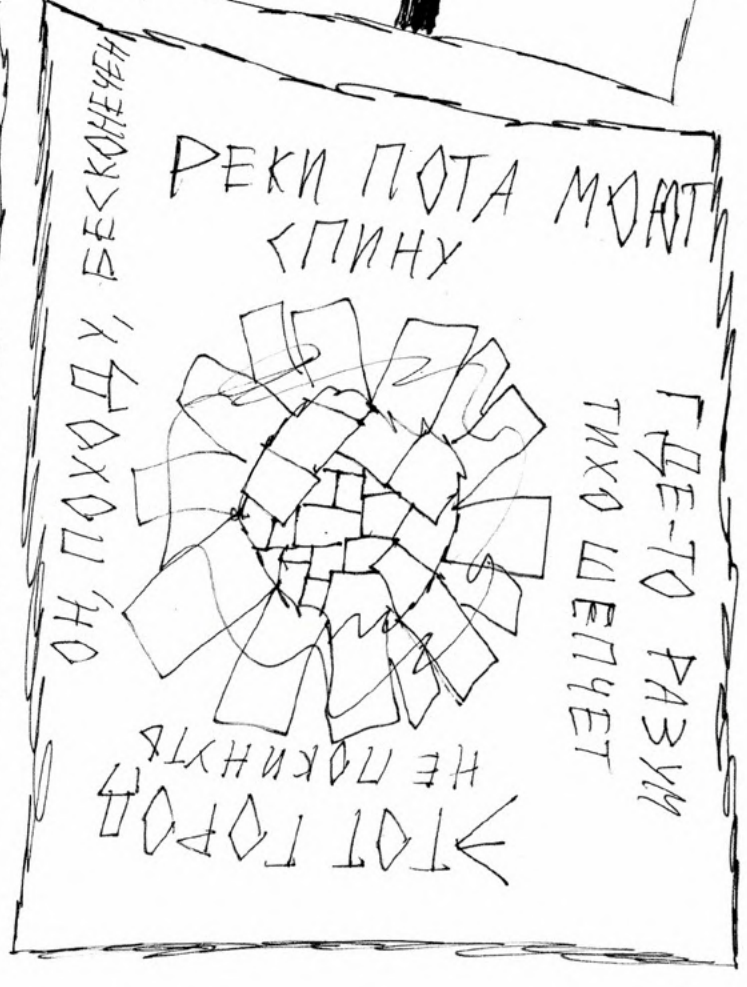 РЕКИ ПОТА МОЮТ
СПИНУ
ГДЕ-ТО РАЗУМ
ТИХО ШЕПЧЕТ
ЭТОТ ГОРОД
НЕ ПОКИНУТЬ
ОН, ПОХОДУ, БЕСКОНЕЧЕН